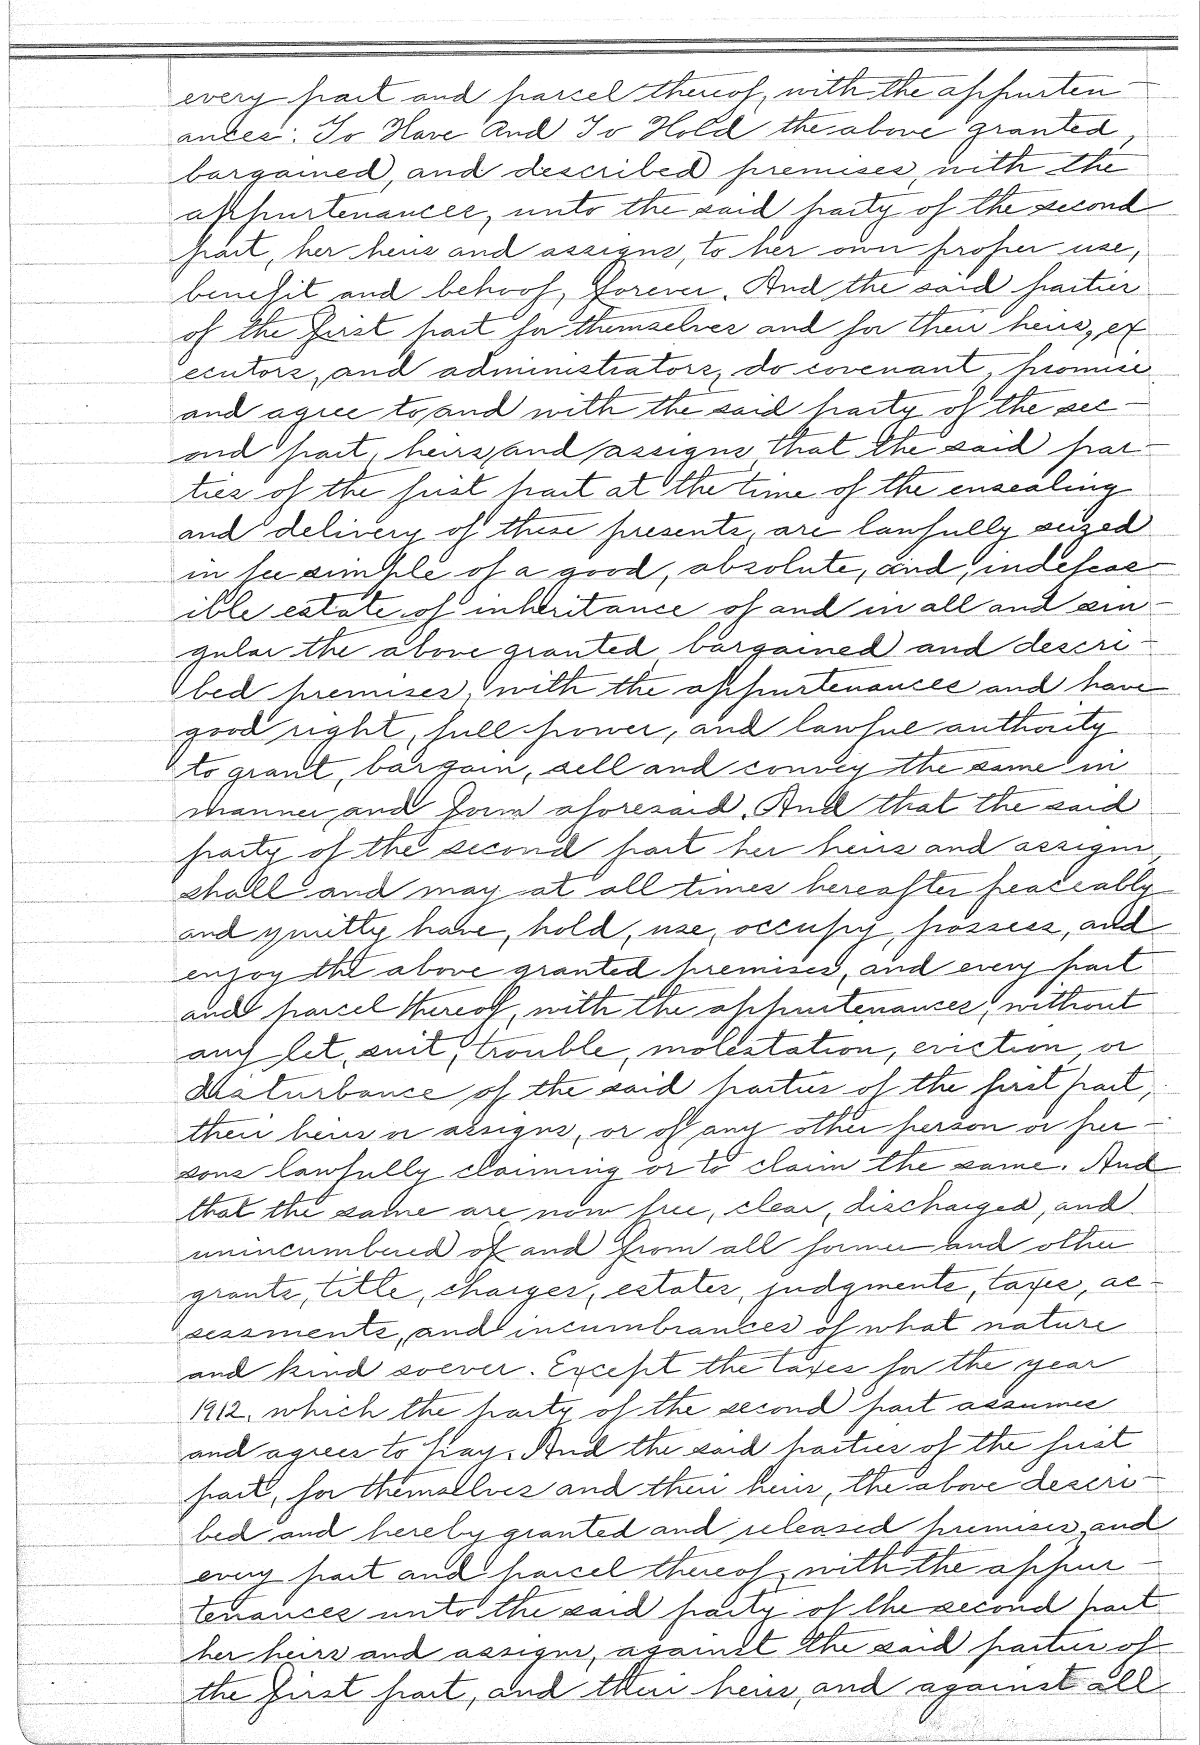 every part and parcel thereof, with the appurten-
ances: To Have And To Hold the above granted,
bargained, and described premises, with the
appurtenances, unto the said party of the second
part, her heirs and assigns, to her own proper use,
benefit and behoof, forever. And the said parties
of the first part for themselves and for their heirs, ex
ecutors, and administrators, do covenant, promise
and agree to, and with the said party of the sec-
ond part, heirs, and assigns, that the said par-
ties of the first part at the time of the ensealing
and delivery of these presents, are lawfully seized
in fee simple of a good, absolute, and, indefeas-
ible estate of inheritance of and in all and sin-
gular the above granted, bargained and descri-
bed premises, with the appurtenances and have
good right, full power, and lawful authority
to grant, bargain, sell and convey the same in
manner and form aforesaid. And that the said
party of the second part her heirs and assigns,
shall and may at all times hereafter peaceably
and quietly have, hold, use, occupy, possess, and
enjoy the above granted premises, and every part
and parcel thereof, with the appurtenances, without
any let, suit, trouble, molestation, eviction, or
disturbance of the said parties of the first part,
their heirs or assigns, or of any other person or per-
sons lawfully claiming or to claim the same. And
that the same are now free, clear, discharged, and
unincumbered of and from all former and other
grants, title, charges, estates, judgments, taxes, as-
sessments, and incumbrances of what nature
and kind soever. Except the taxes for the year
1912, which the party of the second part assumes
and agrees to pay. And the said parties of the first
part, for themselves and their heirs, the above descri-
bed and hereby granted and released premises, and
every part and parcel thereof, with the appur-
tenances unto the said party of the second part
her heirs and assigns, against the said parties of
the first part, and their heirs, and against all